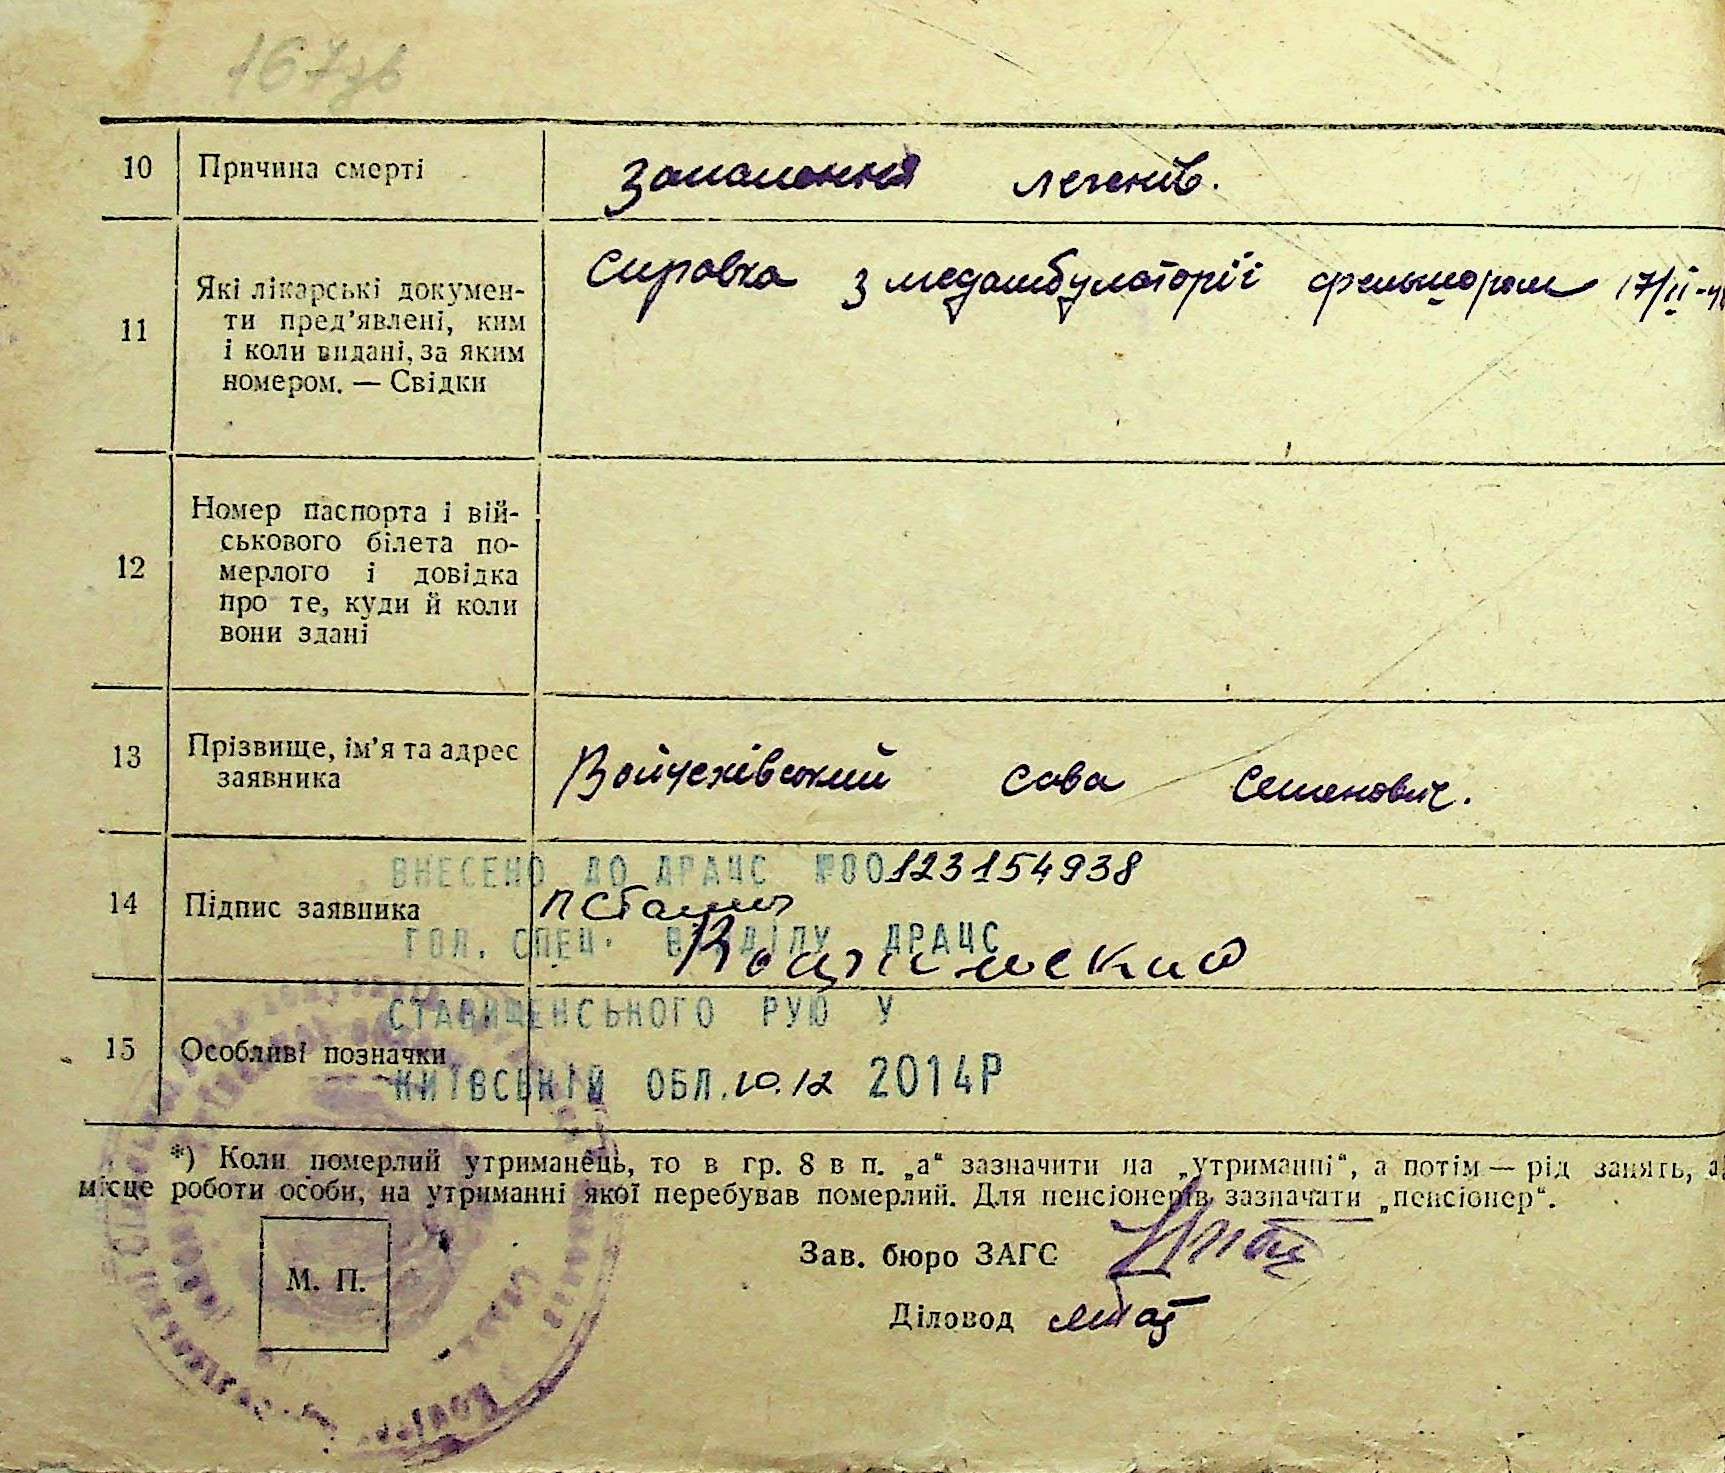 167зв
10 Причина смерті Запалення легенів.
11 Які лікарські докумен-
ти пред'явлені, ким
і коли видані, за яким
номером. — Свідки
Справка з медамбулаторії фельшором 17/II-4
12 Номер паспорта і вій-
ськового білета по-
мерлого і довідка
про те, куди й коли
вони здані
13 Прізвище, ім'я та адрес
заявника
Войчехівський Сава Семенович.
ВНЕСЕНО ДО ДРАЦС №00123154938
14 Підпис заявника
ГОЛ. СПЕЦ. ВІДДІЛУ ДРАЦС
СТАВИЩЕНСЬКОГО РУЮ У
15 Особливі позначки
КИЇВСЬКІЙ ОБЛ. 10.12 2014Р
*) Коли померлий утриманець, то в гр. 8 в п. „а“ зазначити на „утриманні“, а потім — рід занять, а
місце роботи особи, на утриманні якої перебував померлий. Для пенсіонерів зазначати „пенсіонер“.
Зав. бюро ЗАГС
М. П.
Діловод